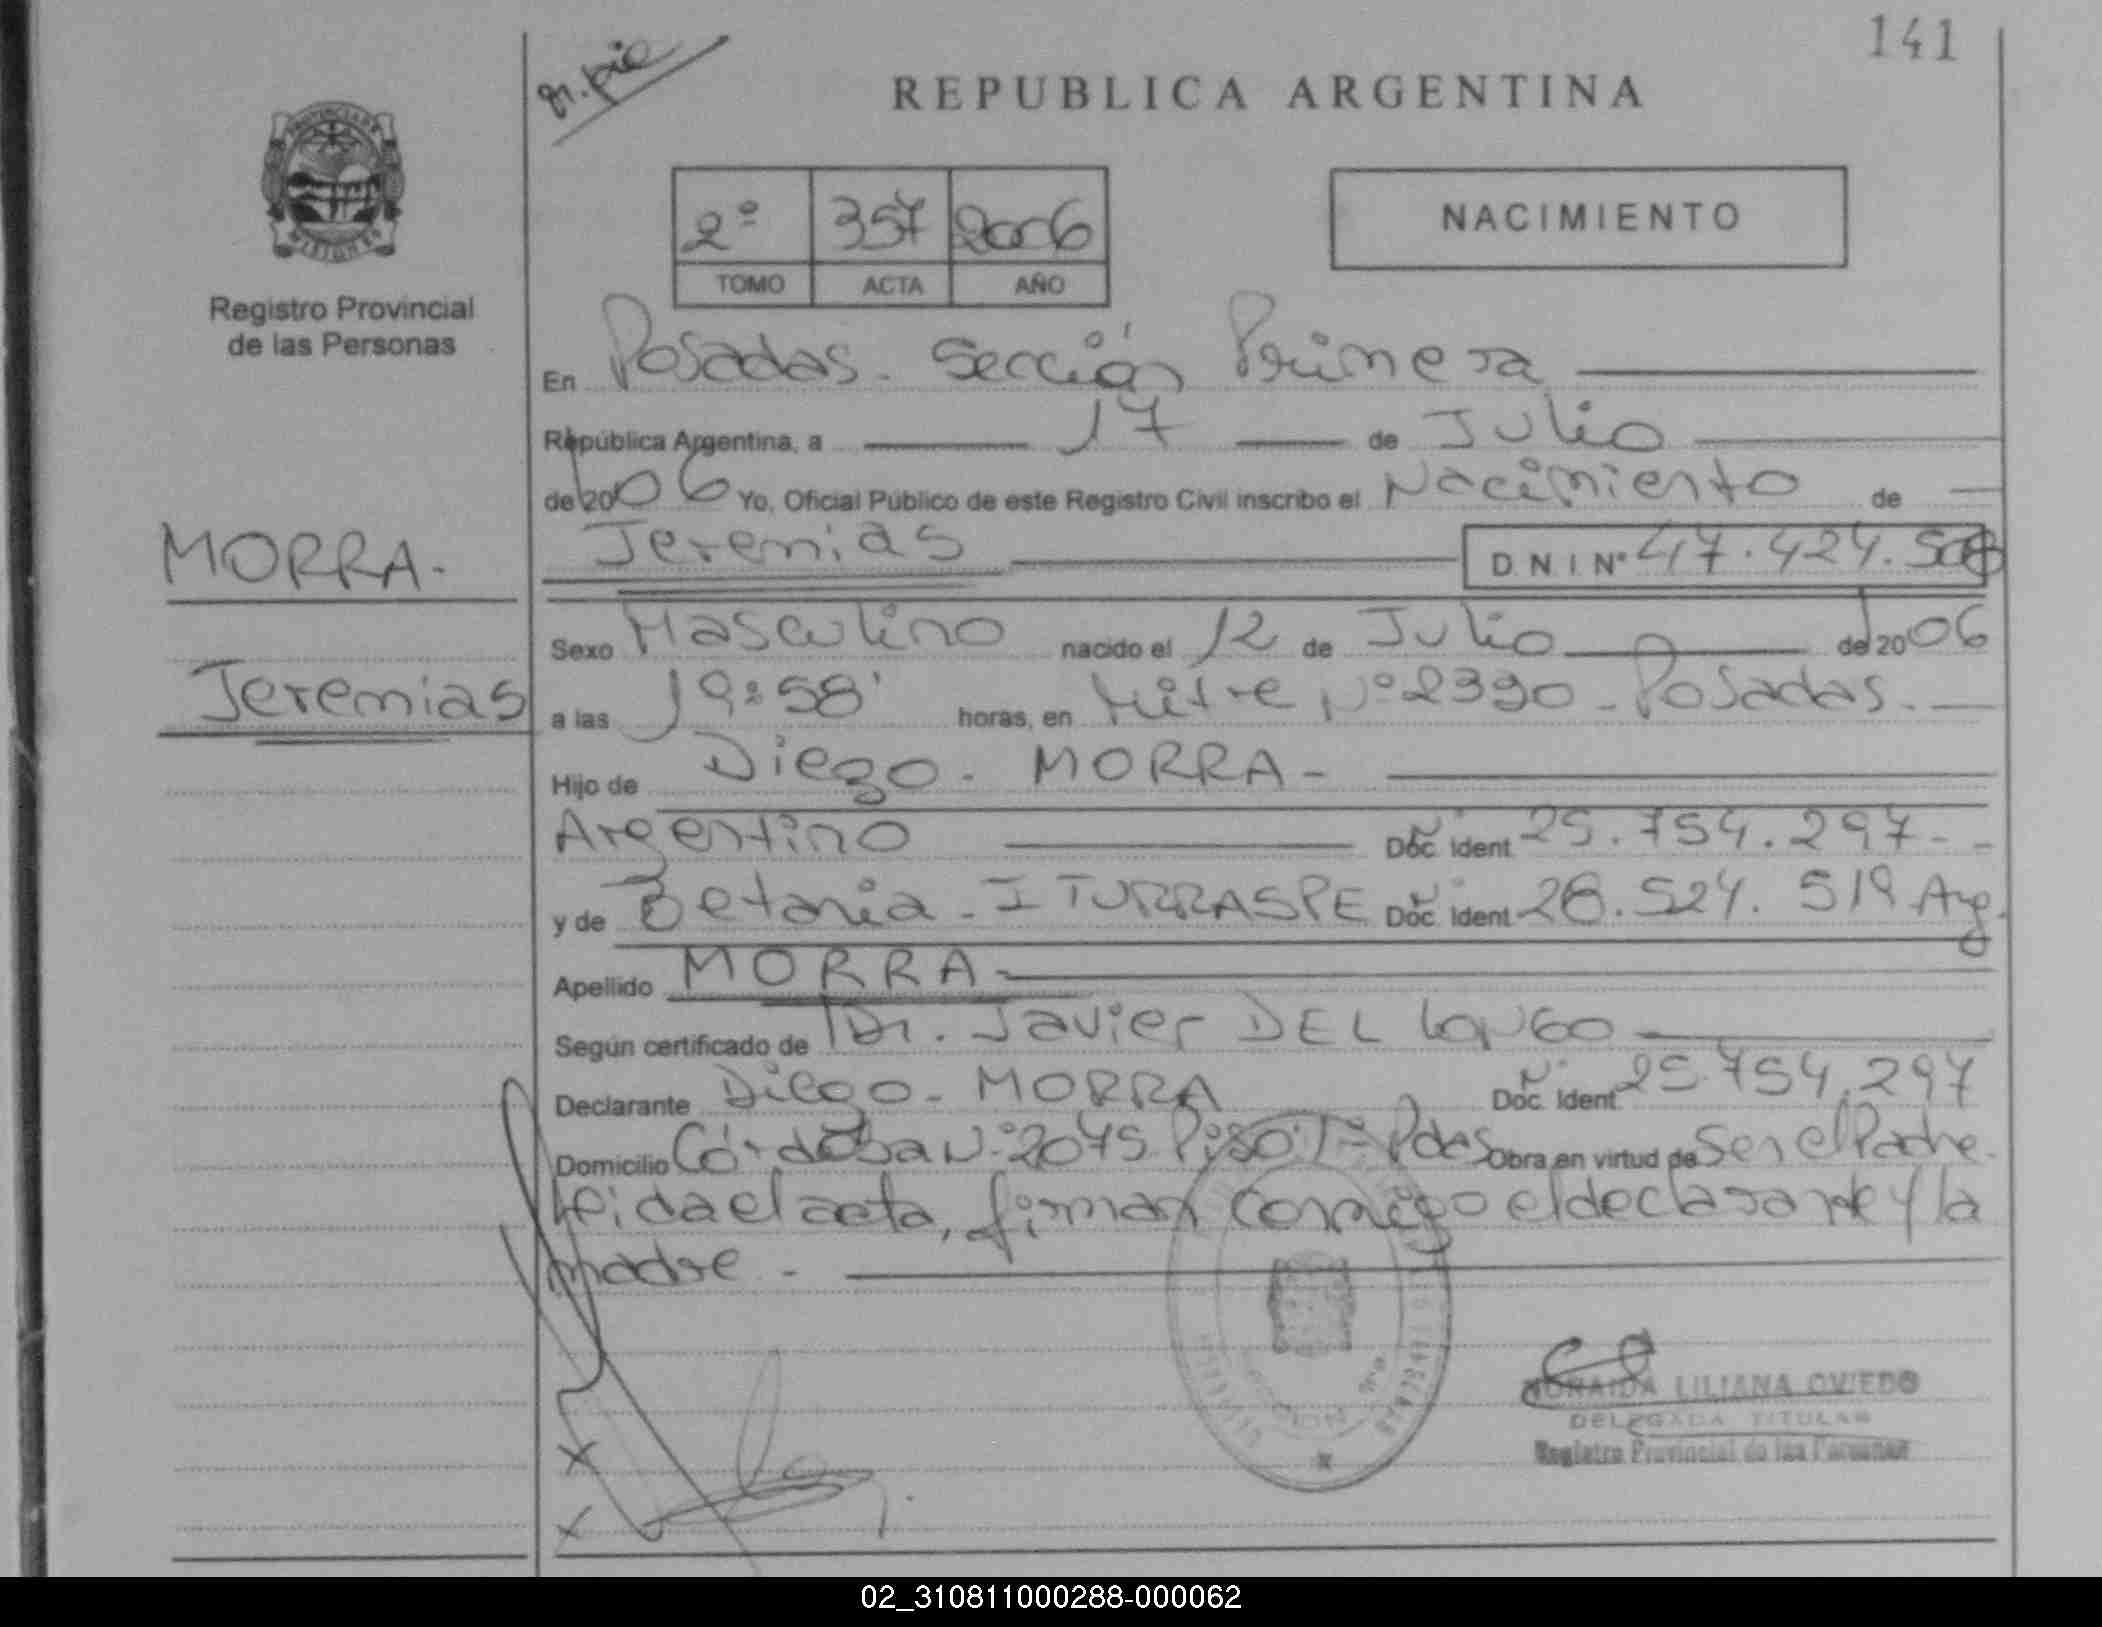 141
REPUBLICA ARGENTINA
2º 357 2006
TOMO ACTA AÑO
NACIMIENTO
Registro Provincial
de las Personas
En Posadas. Sección Primera
República Argentina, a 17 de Julio
de 2006 Yo, Oficial Público de este Registro Civil inscribo el Nacimiento de
MORRA.
Jeremias
Jeremias D.N.I. Nº 47.424.508
Sexo Masculino nacido el 12 de Julio de 2006
a las 19:58' horas, en Mitre Nº 2390 - Posadas.
Hijo de Diego - MORRA -
Argentino Doc. Ident. 25.754.297 -
y de Betania - ITURRASPE Doc. Ident. 28.524.519 Arg.
Apellido MORRA -
Según certificado de Dr. Javier DEL LONGO
Declarante Diego - MORRA Doc. Ident. 25.754.297
Domicilio Córdoba Nº 2075 Piso 1º Pdas Obra en virtud de Ser el Padre.
Leida el acta, firman conmigo el declarante y la
madre. -
LILIANA OVIEDO
DELEGADA TITULAR
Registro Provincial de las Personas
02_310811000288-000062